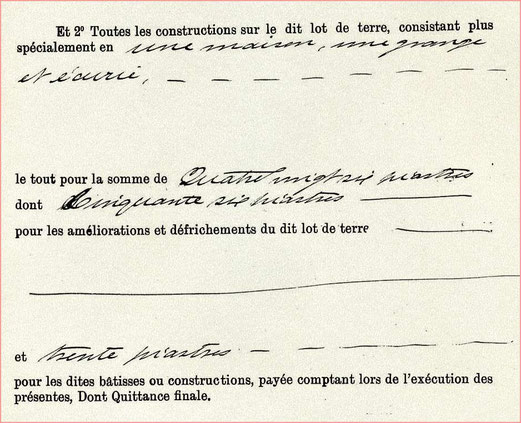 Et 2º Toutes les constructions sur le dit lot de terre, consistant plus
spécialement en une maison, une grange
et écurie, — — — — — — —
le tout pour la somme de Quatre vingt six piastres
dont Cinquante six piastres ———
pour les améliorations et défrichements du dit lot de terre ———
et trente piastres — — ———
pour les dites bâtisses ou constructions, payée comptant lors de l'exécution des
présentes, Dont Quittance finale.